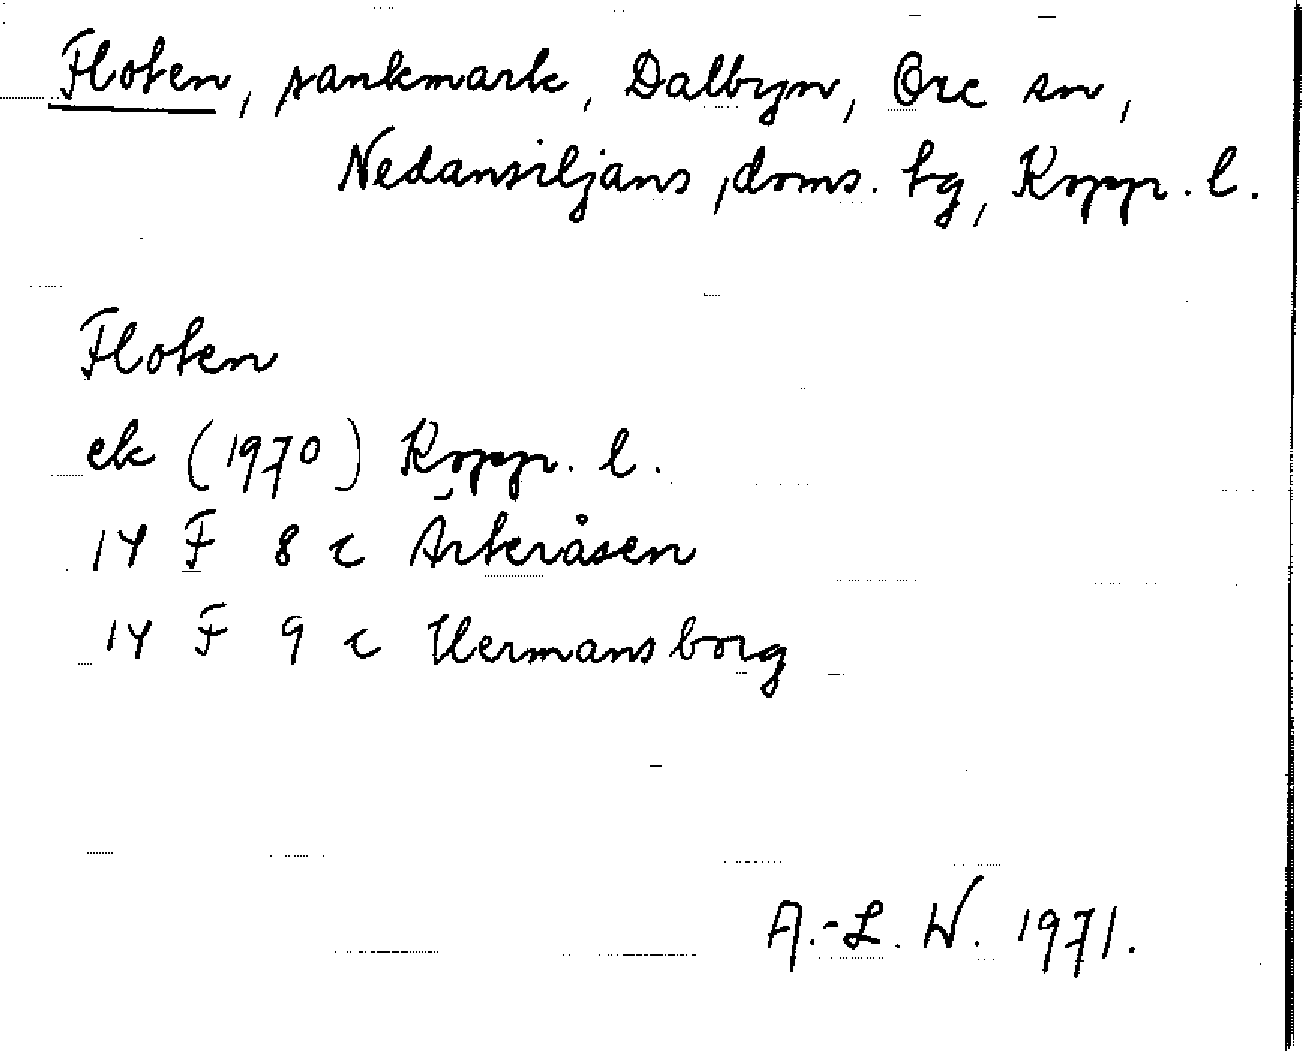 Floten, sankmark, Dalbyn, Ore sn,
Nedansiljans doms. tg, Kopp. l.
Floten
ek (1970) Kopp. l.
14 F 8 c Arteråsen
14 F 9 c Hermansborg
A.-L. W. 1971.